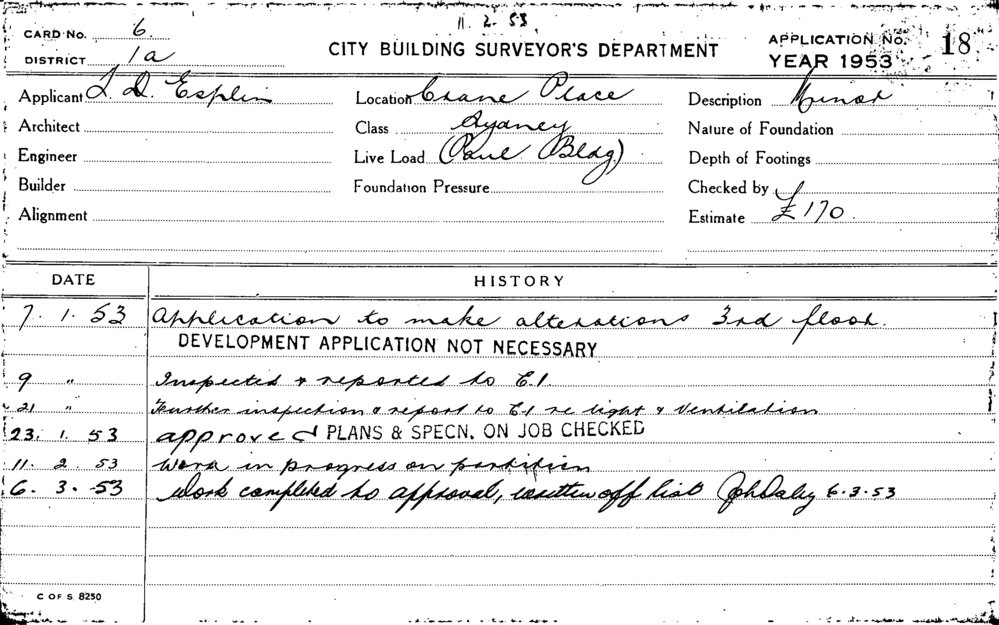 11. 2. 53
CARD No. 6
CITY BUILDING SURVEYOR'S DEPARTMENT
APPLICATION No. 18
DISTRICT 1a
YEAR 1953
Applicant D. Esplin
Location Crane Place
Description Minor
Architect
Class Sydney
Nature of Foundation
Engineer
Live Load Bldg)
Depth of Footings
Builder
Foundation Pressure
Checked by
Alignment
Estimate £170
DATE
HISTORY
7. 1. 53 Application to make alterations 3rd floor.
DEVELOPMENT APPLICATION NOT NECESSARY
9 " Inspected & reported to E.1.
21 " Further inspection & report to E1 re light & Ventilation
23. 1. 53 approved PLANS & SPECN. ON JOB CHECKED
11. 2. 53 Work in progress on partition
6. 3. 53 Work completed to approval, written off list Daley 6.3.53
C OF S 8250